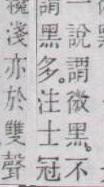 說謂微黑。不
謂黑多。注士冠
淺亦於雙聲